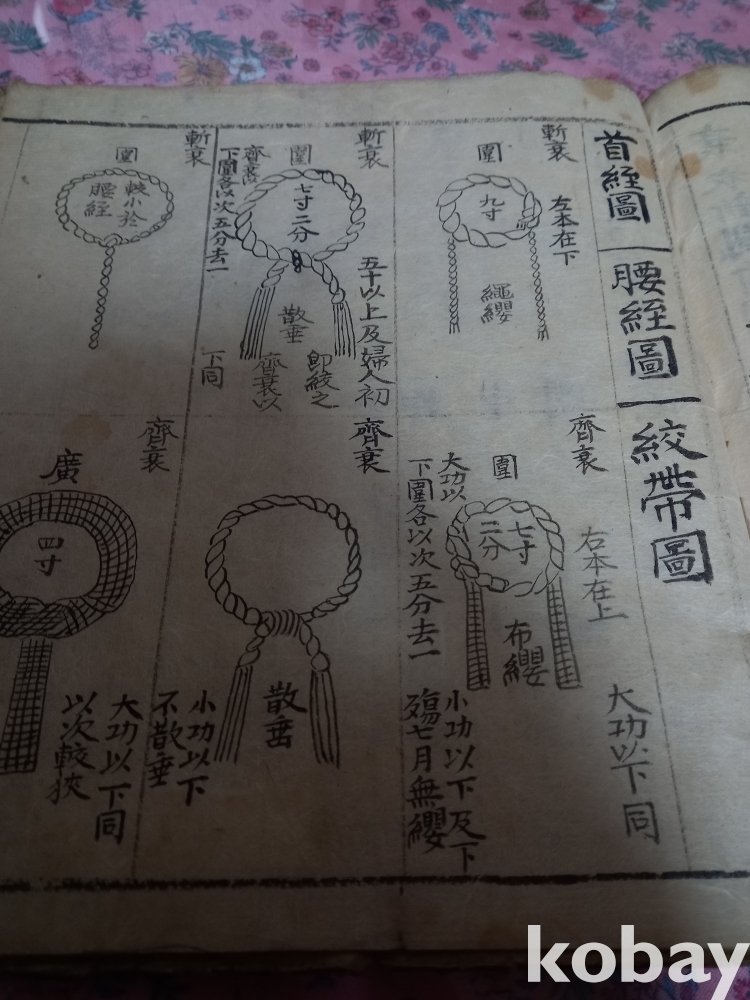 首絰圖
腰絰圖
絞帶圖
斬衰
左本在下
圍
九寸
繩纓
斬衰
五十以上及婦人初
即絞之
齊衰以
下同
圍
七寸二分
散垂
齊衰以
下圍各以次五分去一
斬衰
圍
較小於
腰絰
齊衰
右本在上
大功以下同
圍
七寸
二分
布纓
大功以
下圍各以次五分去一
小功以下及下
殤七月無纓
齊衰
散垂
小功以下
不散垂
齊衰
廣
四寸
大功以下同
以次較狹
kobay